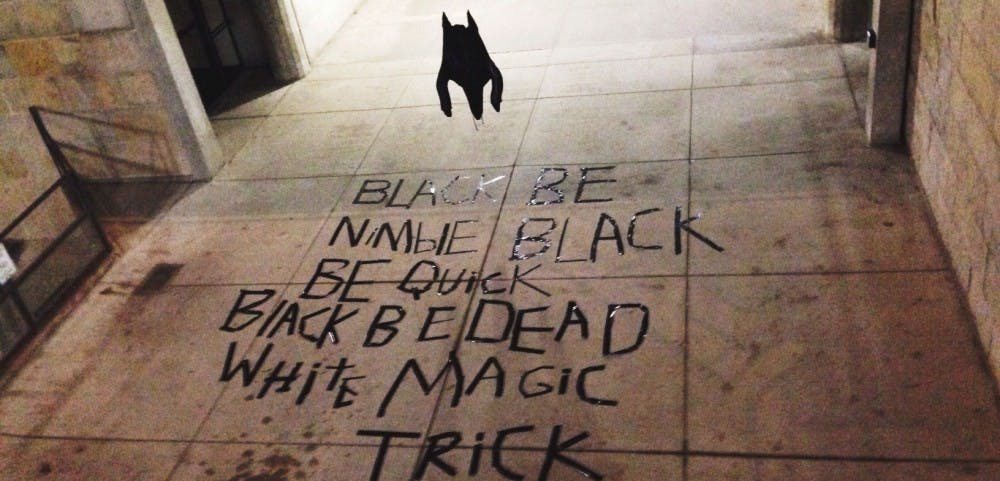 BLACK BE
NiMblE BLACK
BE QUiCK
BlACK BE DEAD
WHitE MAGiC
TRiCK